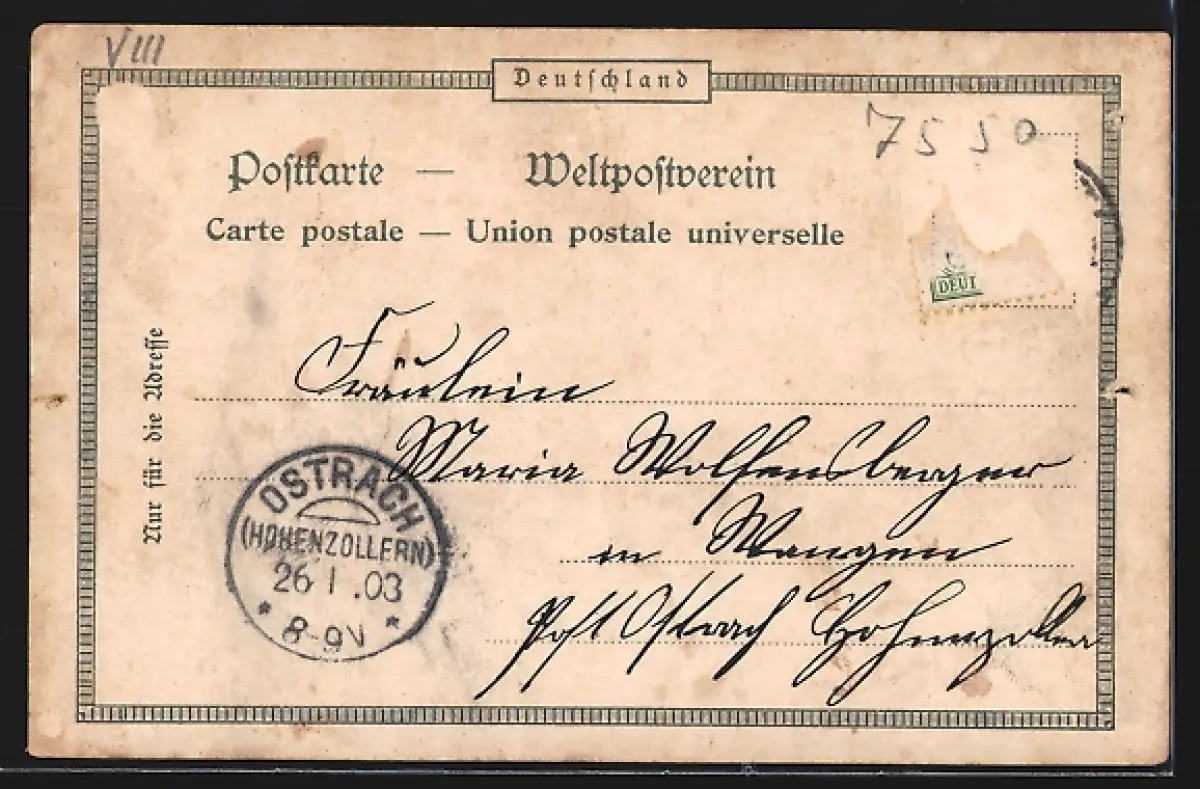 VIII
Deutschland
7550
Postkarte — Weltpostverein
Carte postale — Union postale universelle
DEUT
Nur für die Adresse
Fräulein
Maria Wolfensberger
in Wangen
Post Ostrach Hohenzollern
OSTRACH
(HOHENZOLLERN)
26 1 .03
* 8-9V *